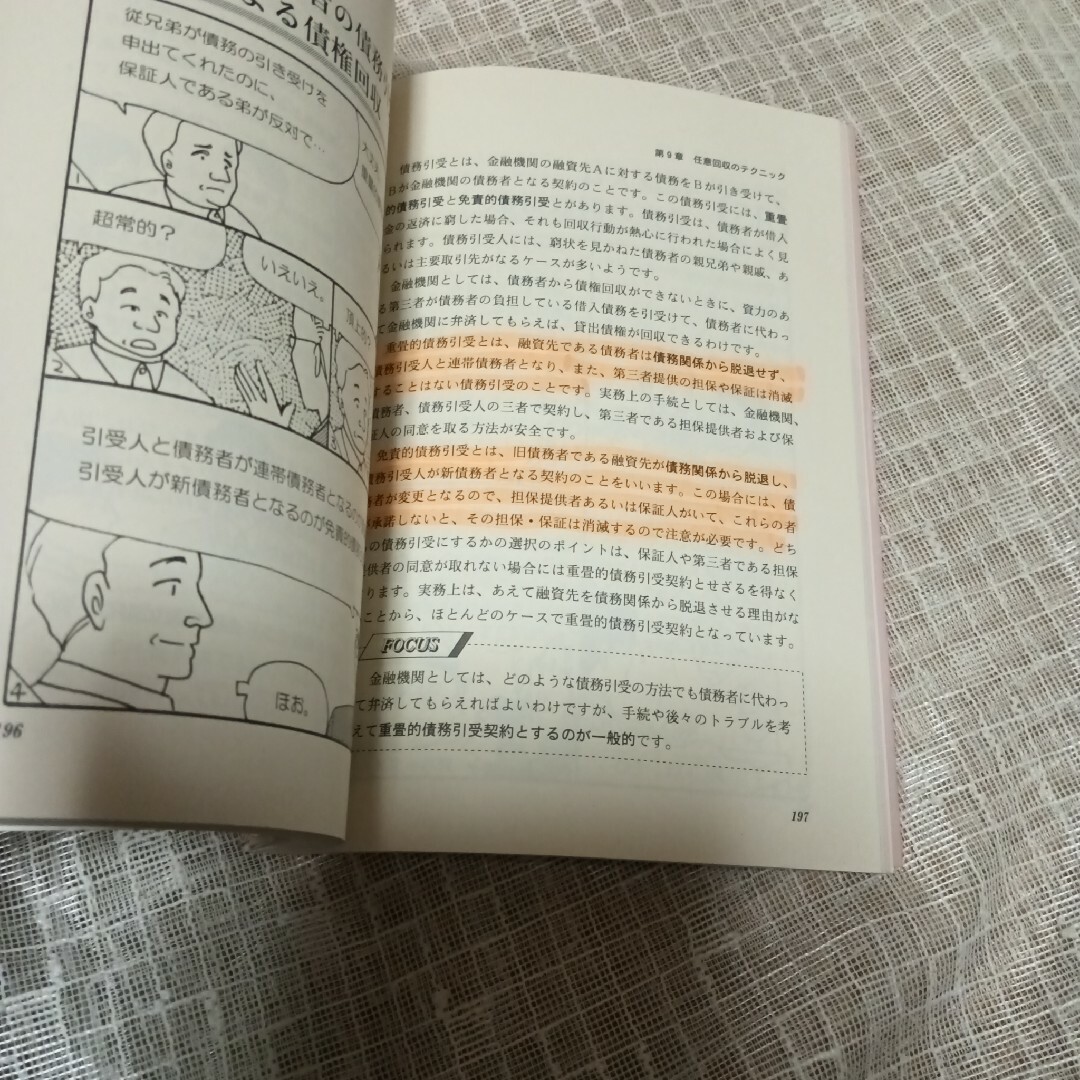 者の債務
よる債権回収
従兄弟が債務の引き受けを
申出てくれたのに、
保証人である弟が反対で…
1
超常的?
いえいえ。
2
引受人と債務者が連帯債務者となるの
引受人が新債務者となるのが免責的債
ほお。
4
96
第9章 任意回収のテクニック
債務引受とは、金融機関の融資先Aに対する債務をBが引き受けて、
Bが金融機関の債務者となる契約のことです。この債務引受には、重畳
的債務引受と免責的債務引受とがあります。債務引受は、債務者が借入
金の返済に窮した場合、それも回収行動が熱心に行われた場合によく見
られます。債務引受人には、窮状を見かねた債務者の親兄弟や親戚、あ
るいは主要取引先がなるケースが多いようです。
金融機関としては、債務者から債権回収ができないときに、資力のあ
る第三者が債務者の負担している借入債務を引受けて、債務者に代わっ
て金融機関に弁済してもらえば、貸出債権が回収できるわけです。
重畳的債務引受とは、融資先である債務者は債務関係から脱退せず、
債務引受人と連帯債務者となり、また、第三者提供の担保や保証は消滅
することはない債務引受のことです。実務上の手続としては、金融機関、
債務者、債務引受人の三者で契約し、第三者である担保提供者および保
証人の同意を取る方法が安全です。
免責的債務引受とは、旧債務者である融資先が債務関係から脱退し、
債務引受人が新債務者となる契約のことをいいます。この場合には、債
務者が変更となるので、担保提供者あるいは保証人がいて、これらの者
が承諾しないと、その担保・保証は消滅するので注意が必要です。どち
らの債務引受にするかの選択のポイントは、保証人や第三者である担保
提供者の同意が取れない場合には重畳的債務引受契約とせざるを得なく
なります。実務上は、あえて融資先を債務関係から脱退させる理由がな
いことから、ほとんどのケースで重畳的債務引受契約となっています。
FOCUS
金融機関としては、どのような債務引受の方法でも債務者に代わっ
て弁済してもらえればよいわけですが、手続や後々のトラブルを考
えて重畳的債務引受契約とするのが一般的です。
197